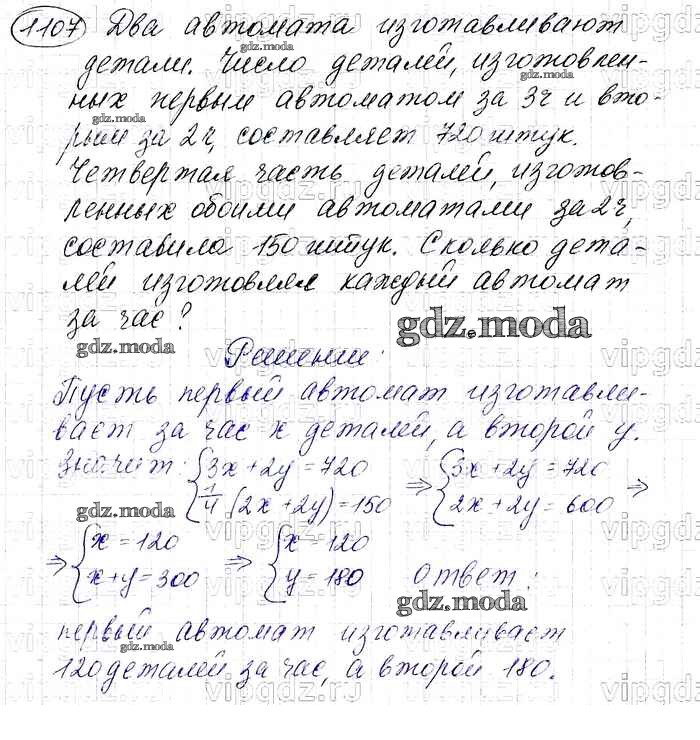 1107 Два автомата изготавливают
детали. Число деталей, изготовлен-
ных первым автоматом за 3ч и вто-
рым за 2ч, составляет 720 штук.
Четвертая часть деталей, изготов-
ленных обоими автоматами за 2ч,
составила 150 штук. Сколько дета-
лей изготовлял каждый автомат
за час?
gdz.moda
Решение:
Пусть первый автомат изготавли-
вает за час x деталей, а второй y.
Значит: {3x + 2y = 720 ⇒ {3x + 2y = 720 ⇒
{1/4 (2x + 2y) = 150 {2x + 2y = 600
⇒ {x = 120 ⇒ {x = 120
{x + y = 300 {y = 180 Ответ:
gdz.moda
первый автомат изготавливает
120 деталей за час, а второй 180.
vipgdz.ru